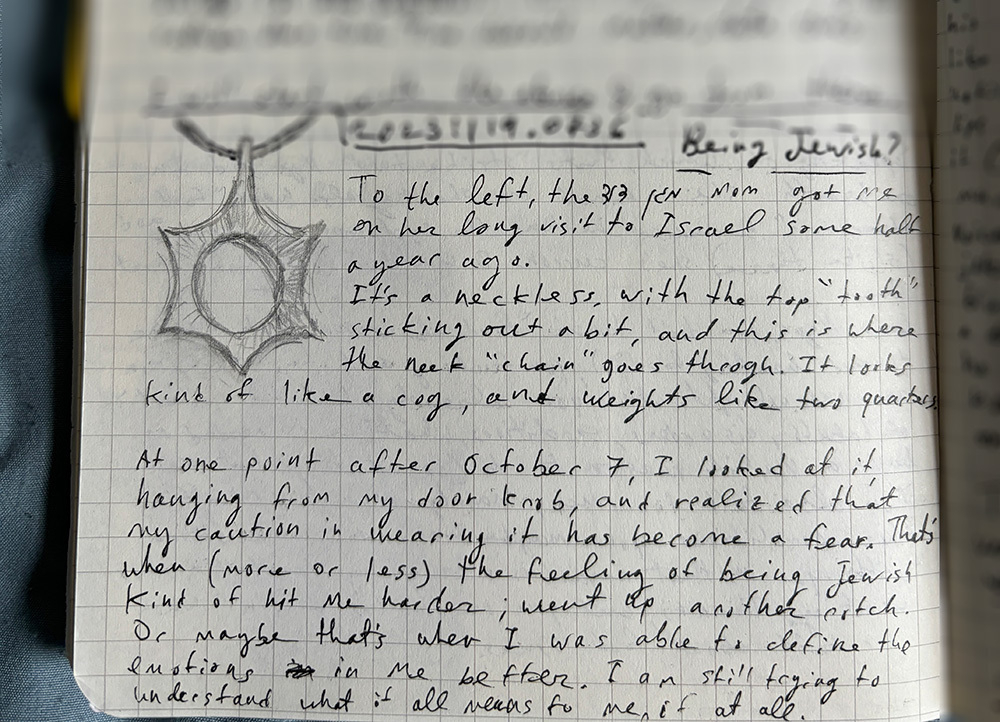 20231119.0736
Being Jewish?
To the left, the מגן דוד Mom got me
on her long visit to Israel some half
a year ago.
It's a neckless, with the top "tooth"
sticking out a bit, and this is where
the neck "chain" goes throogh. It looks
kind of like a cog, and weights like two quarters.
At one point after October 7, I looked at it,
hanging from my door knob, and realized that
my caution in wearing it has become a fear. That's
when (more or less) the feeling of being Jewish
kind of hit me harder; went up another notch.
Or maybe that's when I was able to define the
emotions in me better. I am still trying to
understand what it all means to me, if at all.